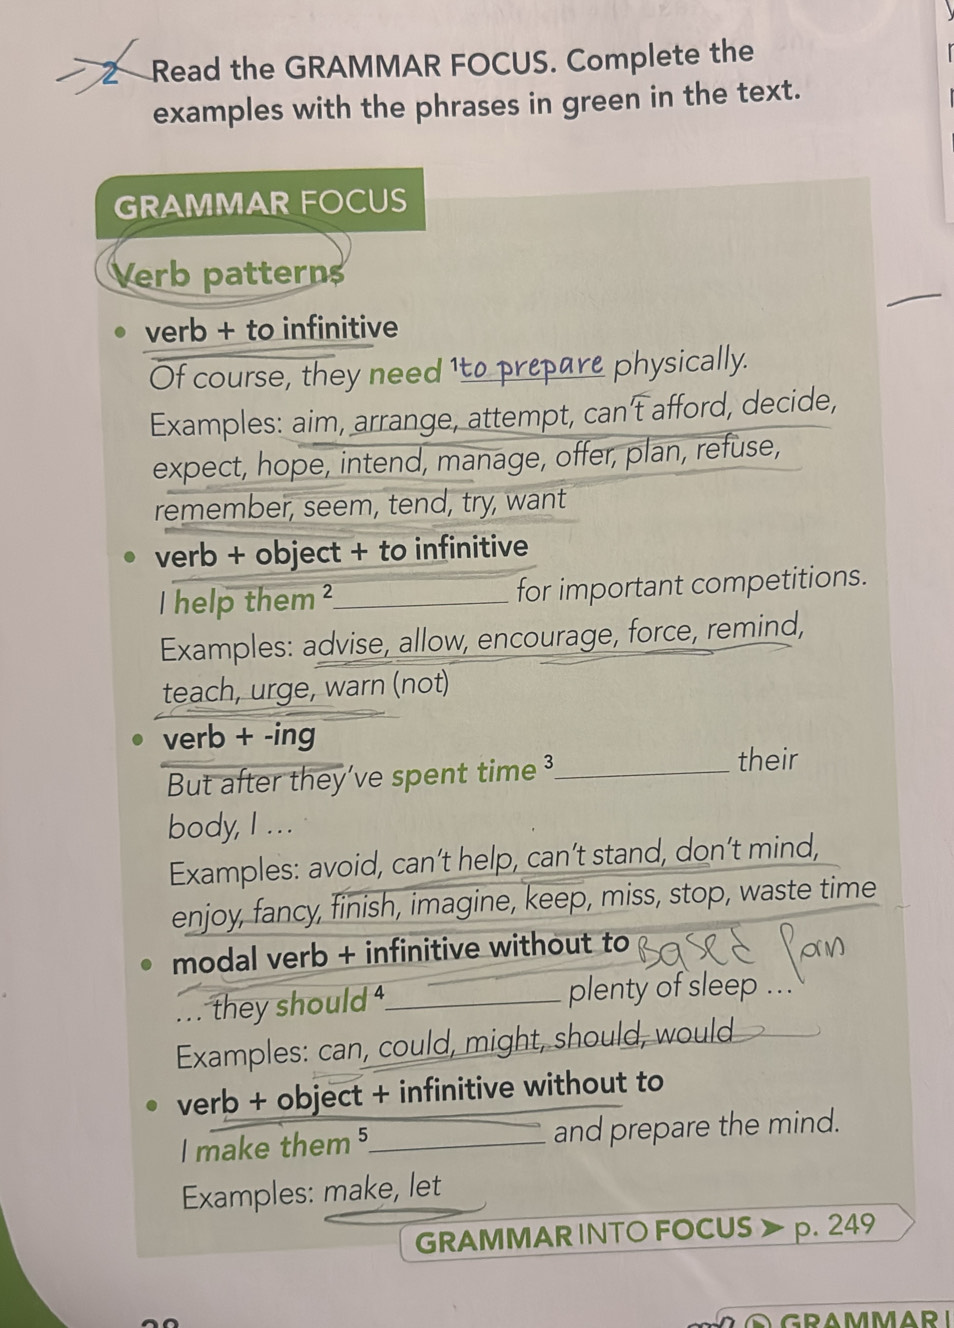 2 Read the GRAMMAR FOCUS. Complete the
examples with the phrases in green in the text.
GRAMMAR FOCUS
Verb patterns
• verb + to infinitive
Of course, they need ¹to prepare physically.
Examples: aim, arrange, attempt, can't afford, decide,
expect, hope, intend, manage, offer, plan, refuse,
remember, seem, tend, try, want
• verb + object + to infinitive
I help them ²____________ for important competitions.
Examples: advise, allow, encourage, force, remind,
teach, urge, warn (not)
• verb + -ing
But after they've spent time ³____________ their
body, I ...
Examples: avoid, can't help, can't stand, don't mind,
enjoy, fancy, finish, imagine, keep, miss, stop, waste time
• modal verb + infinitive without to Based
... they should ⁴____________ plenty of sleep ...
Examples: can, could, might, should, would
• verb + object + infinitive without to
I make them ⁵____________ and prepare the mind.
Examples: make, let
GRAMMAR INTO FOCUS ➤ p. 249
GRAMMAR